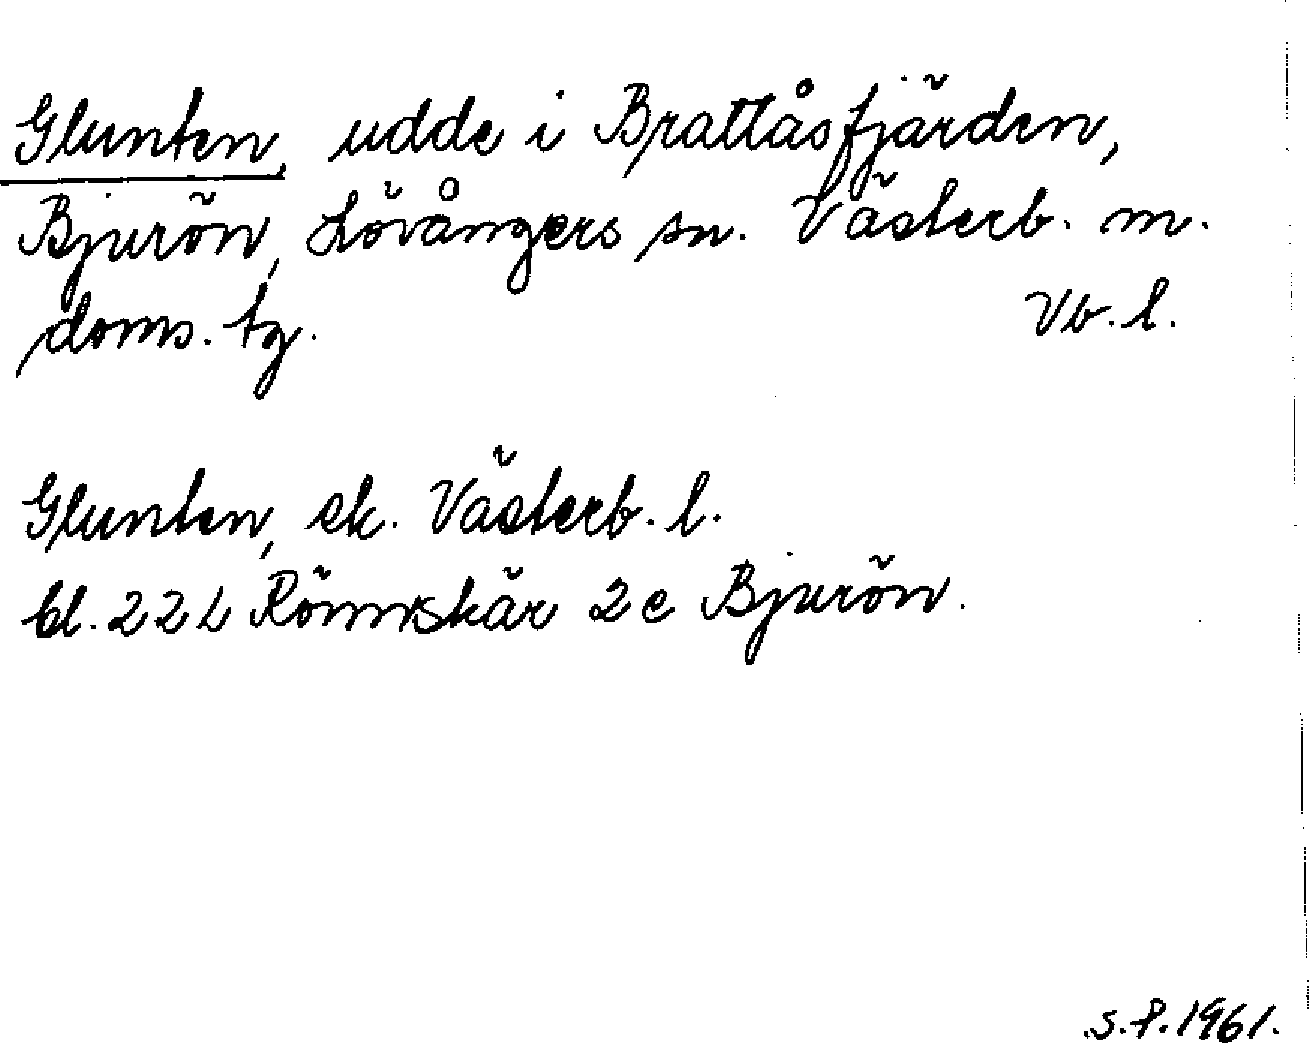 Glunten, udde i Brattåsfjärden,
Bjurön, Lövångers sn. Västerb. m.
doms. tg. Vb. l.
Glunten, ek. Västerb. l.
bl. 22 L Rönnskär 2 e Bjurön.
s. f. 1961.